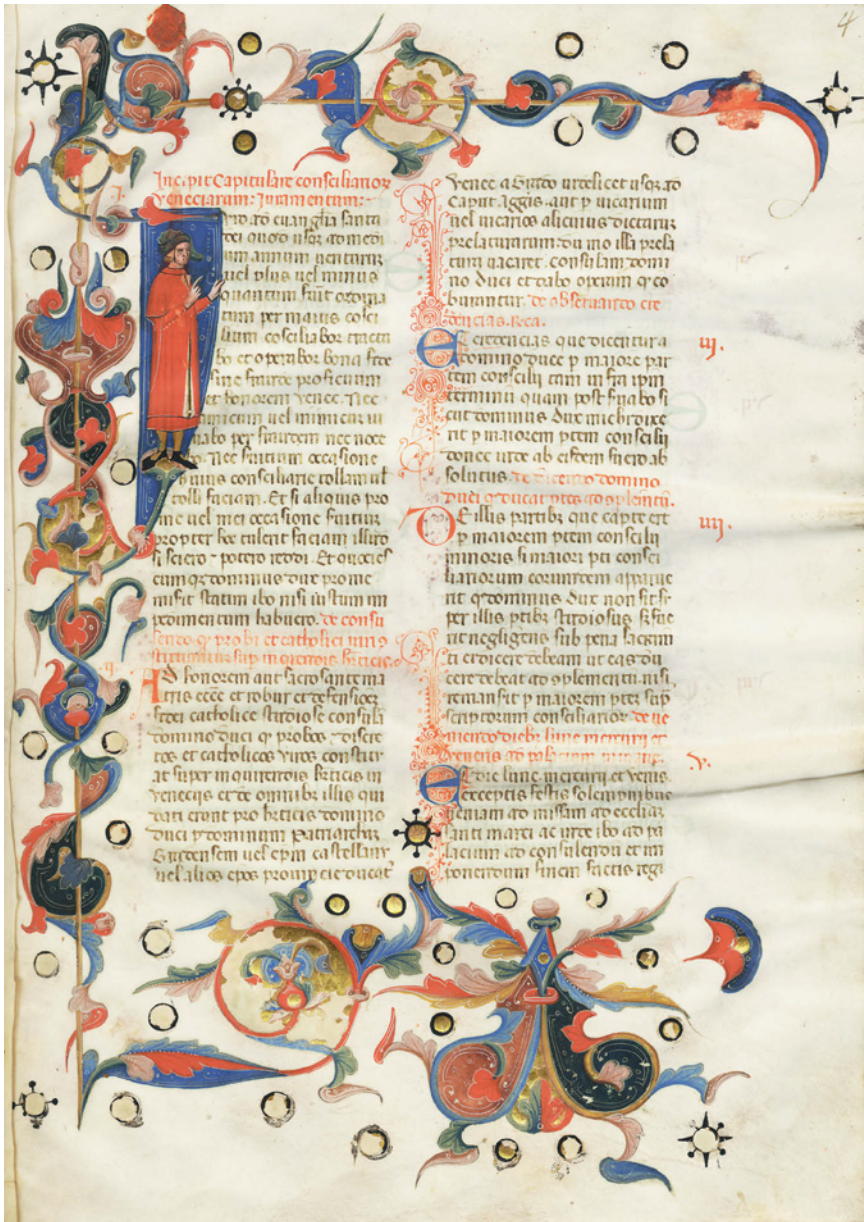 4
Incipit Capitulare consiliarioꝝ
Veneciarum: Juramentum:
I.
Juro ad euangelia sancta
dei quod usqꝫ ad medi
um annum uenturum
uel plus uel minus
quantum fuerit ordina
tum per maius consi
lium consiliabor tracta
bo et operabor bona fide
sine fraude proficuum
et honorem Venec. Nec
amicum uel inimicum iu
uabo per fraudem nec noce
bo. Nec seruicium occasione
huius consiliarie tollam uel
tolli faciam. Et si aliquis pro
me uel mei occasione seruicium
propter hoc tulerit faciam illud
si sciero et potero reddi. Et quocies
cumqꝫ dominus dux pro me
miserit statim ibo nisi iustum im
pedimentum habuero. de consu
lendo qꝫ probi et catholici uiri
statuantur sup inquirendis hereticis.
II.
AD honorem aut sacrosancte ma
tris ecc̄e et robur et defensionem
fidei catholice studiose consulā
domino duci qꝫ probos et discre
tos et catholicos uiros constitu
at super inquirendis hereticis in
Venecijs et de omnibꝫ illis qui
dati erunt pro hereticis domino
duci per dominum Patriarcham
Gradensem uel ep̄m castellanū
uel alios ep̄os prouincie ducatꝰ
Venec. a Grado uidelicet usqꝫ ad
Caput aggis. aut p uicarium
uel uicarios alicuius dictarum
prelaturarum dum modo illa prela
tura uacaret. consulam domi
no duci et dabo operam qꝫ co
burantur. de obseruando cre
dencias. Rca.
ET credencias que dicentur a
domino duce p maiore par
tem consilij tam infra ipm
terminum quam post seruabo si
cut dominus Dux michi dixe
rit p maiorem ptem consilij
donec inde ab eisdem fuero ab
solutus. de dicendo domino
Duci qꝫ ducat ptes ad ꝯplementū.
iii.
DE illis partibꝫ que capte erūt
p maiorem ptem consilij
minoris si maiori pti consi
liariorum eorumdem apparue
rit qꝫ dominus Dux non sit su
per illis ptibꝫ studiosus ꝫ fue
rit negligens sub pena sacram̄
ti ei dicere debeam ut eas du
cere debeat ad ꝯplementū. nisi
remanserit p maiorem ptem sup
scriptorum consiliarioꝝ. de ue
niendo diebꝫ lune mercurij et
ueneris ad palacium in mane.
iiii.
ET die lune mercurij et ueneris
exceptis festis solempnibus
ueniam ad missam ad ecclesiam
sancti marci ac inde ibo ad pa
lacium ad consulendum et im
ponendum finem factis regi
v.